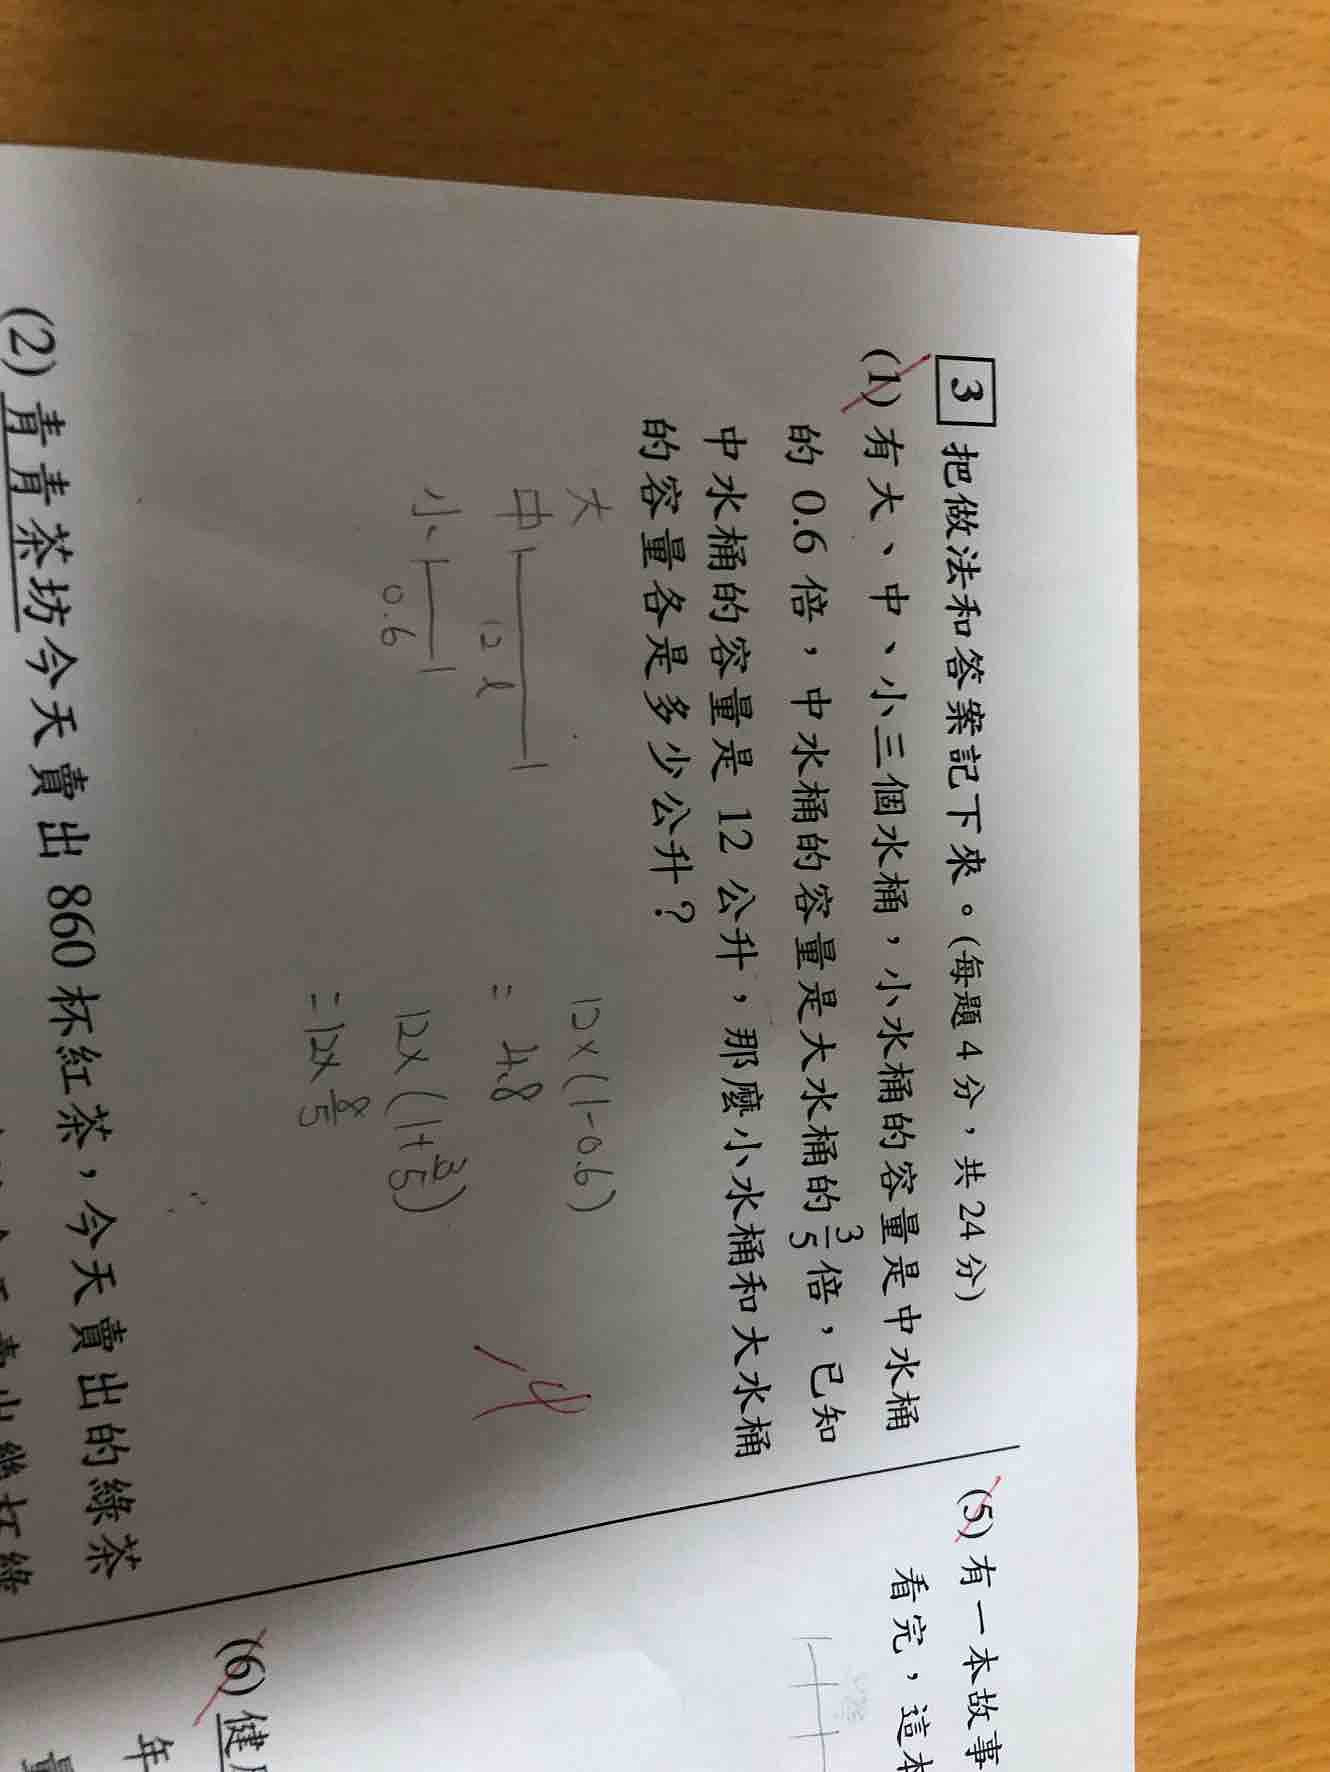 3 把做法和答案記下來。(每題4分,共24分)
(1) 有大、中、小三個水桶,小水桶的容量是中水桶
的 0.6 倍,中水桶的容量是大水桶的 3/5 倍,已知
中水桶的容量是 12 公升,那麼小水桶和大水桶
的容量各是多少公升?
大
中
12 l
小
0.6
12×(1-0.6)
= 4.8
12×(1+3/5)
=12×8/5
-4
(2) 青青茶坊今天賣出 860 杯紅茶,今天賣出的綠茶
(5) 有一本故事
看完,這本
(6) 健
年
量